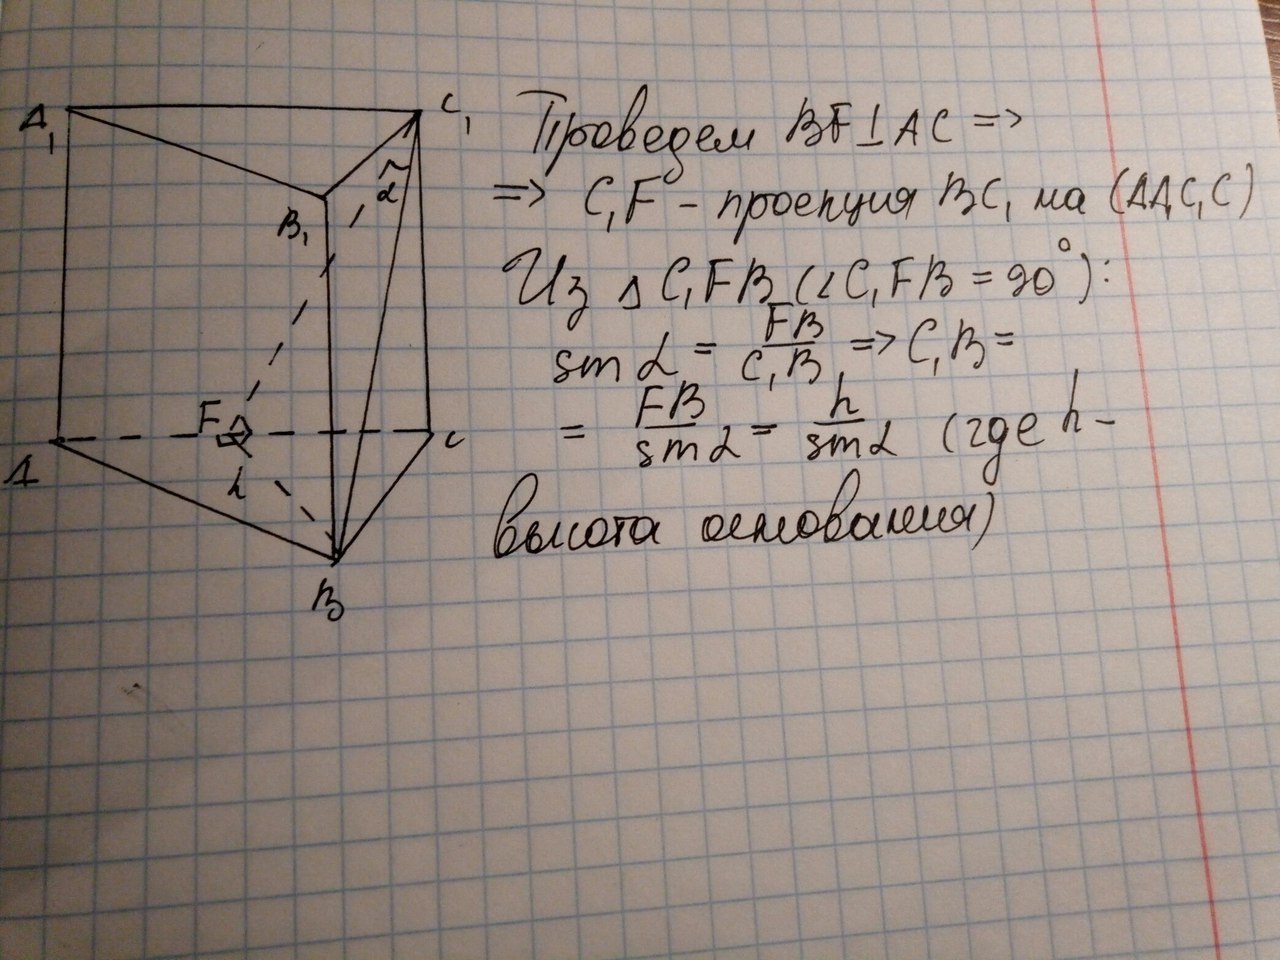 A₁
C₁
B₁
α
F
A
C
h
B
Проведем BF⊥AC =>
=> C₁F - проекция BC₁ на (AA₁C₁C)
Из △C₁FB (∠C₁FB = 90°):
sin α = FB/C₁B => C₁B =
= FB/sin α = h/sin α (где h -
высота основания)